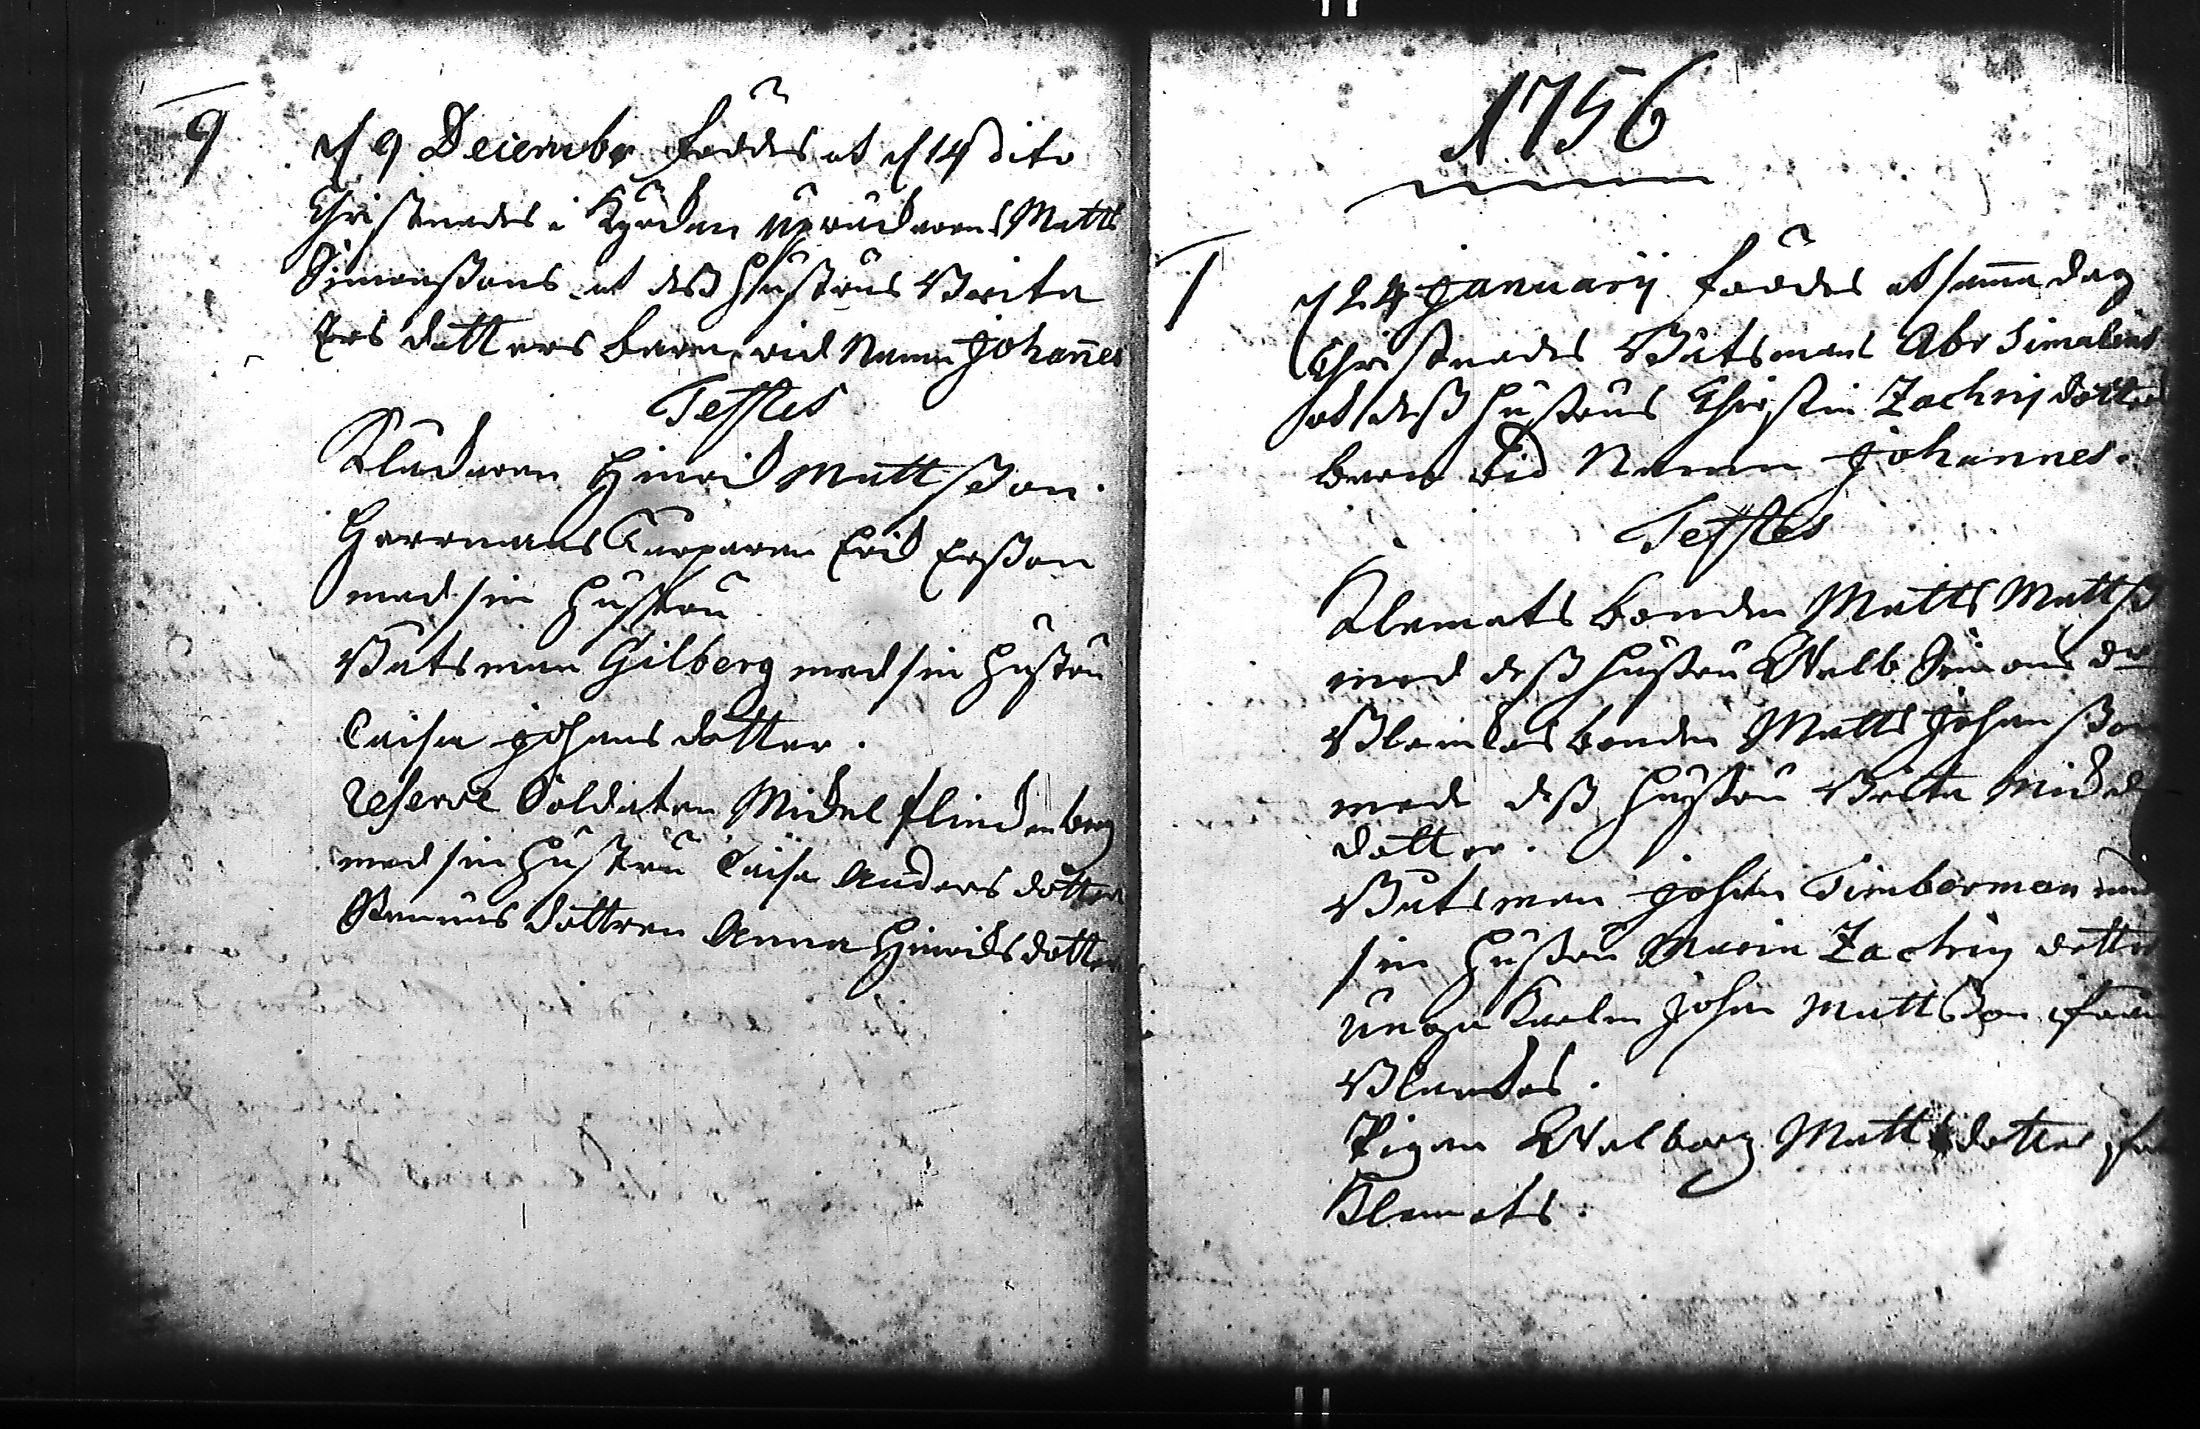 9
d 9 Decembr föddes ok d 14 dito
Christnades i Kyrckan Matts
Simonssons ok dess hustrus Brita
Ers dotters barn, wid Namn Johannes
Testes
Klockaren Hinrick Mattsson.
Herrmans Torparen Erick Ersson
med sin hustru
Båtsman Gilberg med sin hustru
Caisa Johans dotter.
Reserve Soldaten Mickel flinckenberg
med sin hustru Caisa Anders dotter
dottren Anna Hinricks dotter
1756
1
d 24 Januarij föddes ok samma dag
Christnades Båtsmans Abr Simelius
ok dess hustrus Christin Zachrij dotters
barn wid Namn Johannes.
Testes
Klemets bonden Matts Mattss
med dess hustru Walb Simons dr
bonden Matts Johansson
med dess hustru Brita Mickels
dotter.
Båtsman Johan Timberman med
sin hustru Maria Zachrij dotter
unga Karlen Johan Mattsson ifrån

Pigan Walborg Matts dotter, från
Klemets.